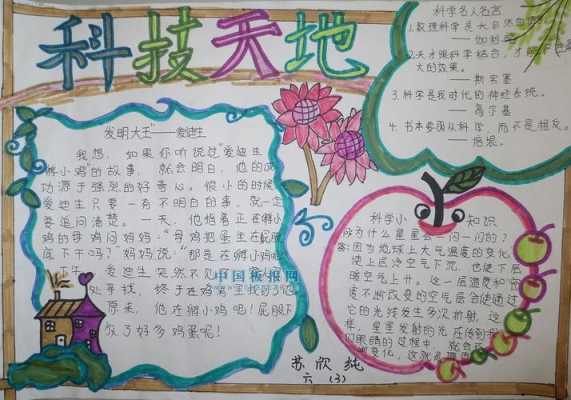 科技天地
发明大王"——爱迪生
我想，如果你听说过"爱迪生
孵小鸡"的故事，就会明白，他的成
功源于强烈的好奇心。很小的时候
爱迪生只要一有不明白的事，就一定
要追问清楚。一天，他指着正在孵小
鸡的母鸡问妈妈："母鸡把蛋坐在屁股
底下干吗？"妈妈说："那是在孵小鸡呢
爱迪生突然不见了
处寻找，终于在鸡窝里找到了他
原来，他在孵小鸡呢！屁股下
放了好多鸡蛋呢！
中国板报网
科学名人名言
1.数理科学是大自然
——伽利略
2.天才跟科学结合，才能
大的效果。
——斯宾塞
3.科学是我时代的神经系统。
——高尔基
4.书本要跟从科学，而不是相反。
——培根。
科学小知识
为什么星星会一闪一闪的？
答:因为地球上大气温度的变化
使上层冷空气下沉，也使下层
暖空气上升。这一层温度和密
度不断改变的空气层会使通过
它的光线发生多次折射，这
样，星星发射的光在传到
我们眼睛的过程中，就会
变化，这就
苏欣纯
六（3）